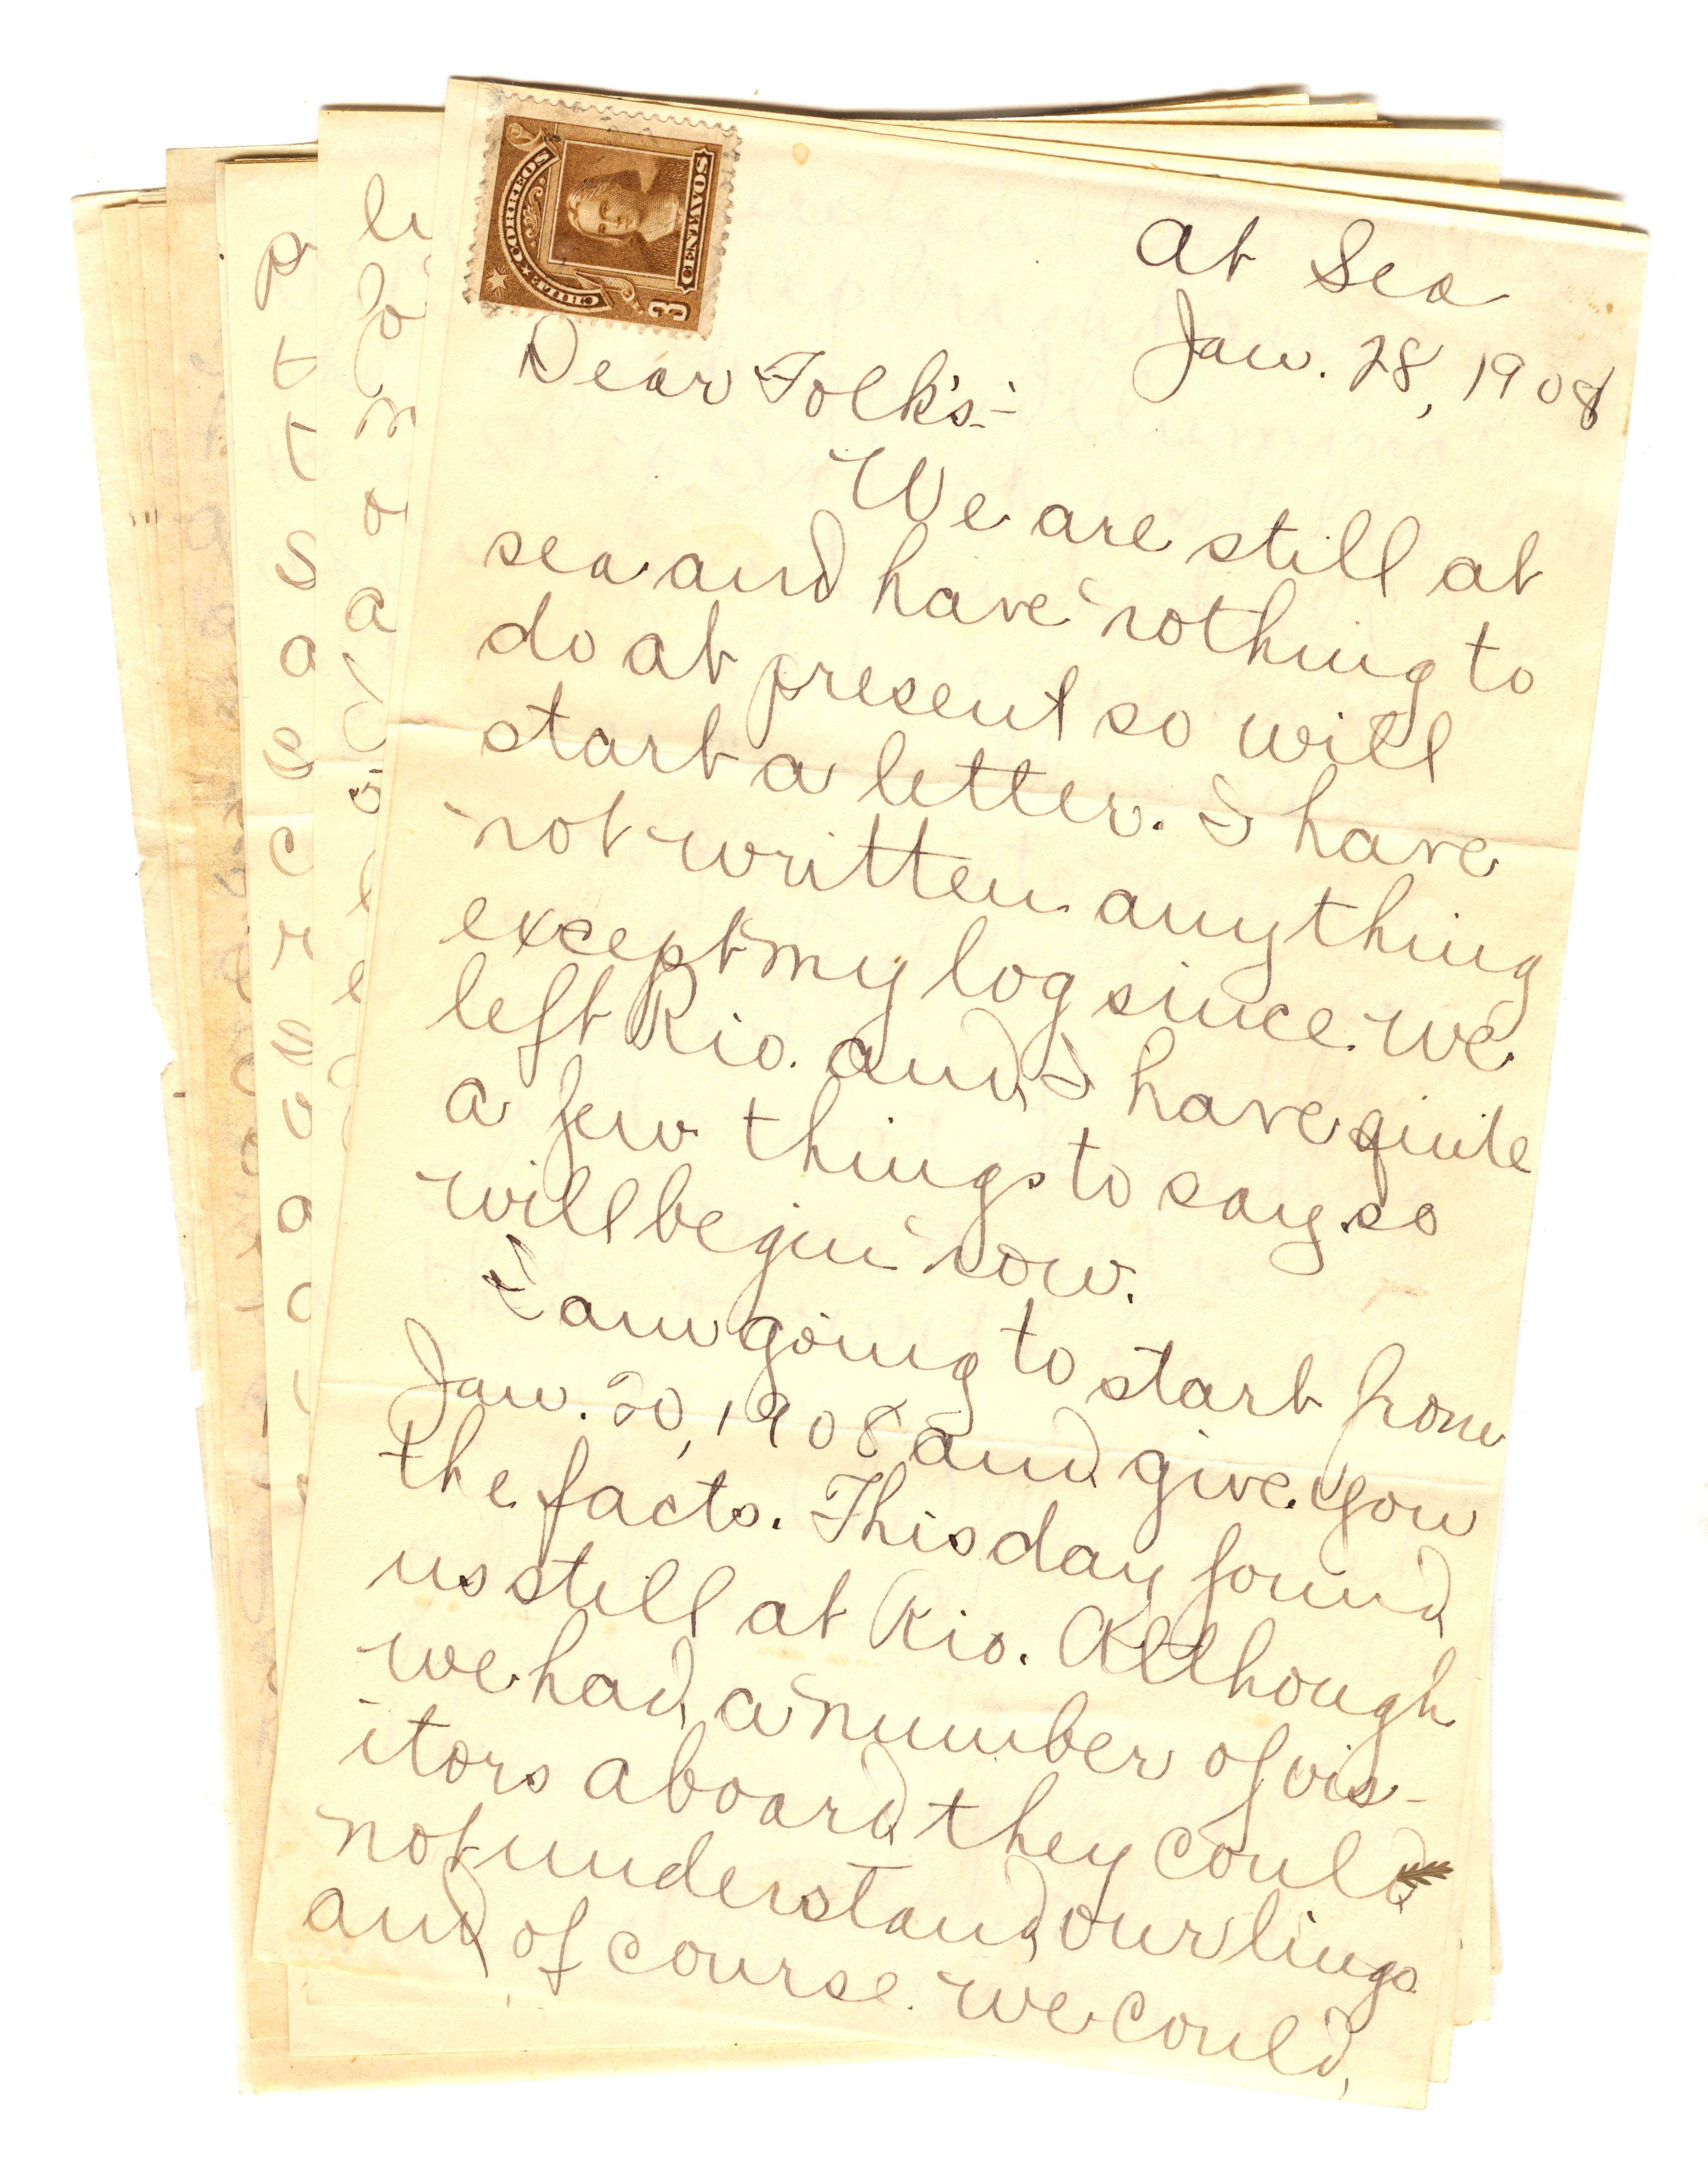 CORREOS
CENTAVOS
3
At Sea
Jan. 28, 1908
Dear Folk's:-
We are still at
sea and have nothing to
do at present so will
start a letter. I have
not written anything
except my log since we
left Rio. and I have quite
a few things to say so
will begin now.
I am going to start from
Jan. 20, 1908 and give you
the facts. This day found
us still at Rio. Although
we had a number of vis-
itors aboard they could
not understand our lingo
and of course we could